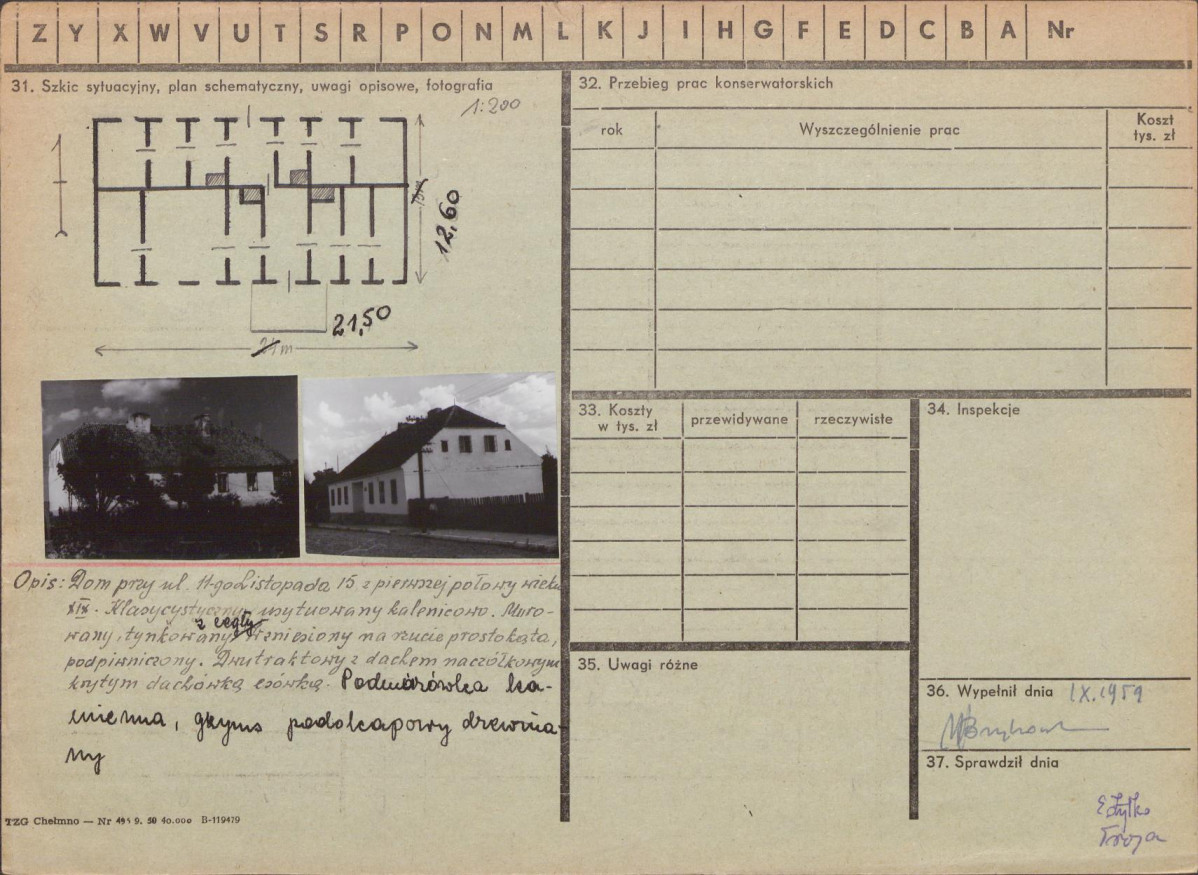 Z Y X W V U T S R P O N M L K J I H G F E D C B A Nr
31. Szkic sytuacyjny, plan schematyczny, uwagi opisowe, fotografia
1:200
12,60
21,50
21 m
Opis: Dom przy ul. 11-go Listopada 15 z pierwszej połowy wieku
XIX. Klasycystyczny, usytuowany kalenicowo. Muro-
z cegły
wany, tynkowany, wzniesiony na rzucie prostokąta,
podpiwniczony. Dwutraktowy z dachem naczółkowym
krytym dachówką esówką. Podmurówka ka-
mienna, gzyms podokapowy drewnia-
ny
TZG Chełmno — Nr 9. 50 40.000 B-119479
32. Przebieg prac konserwatorskich
rok
Wyszczególnienie prac
Koszt
tys. zł
33. Koszty
w tys. zł
przewidywane
rzeczywiste
34. Inspekcje
35. Uwagi różne
36. Wypełnił dnia IX.1959
37. Sprawdził dnia